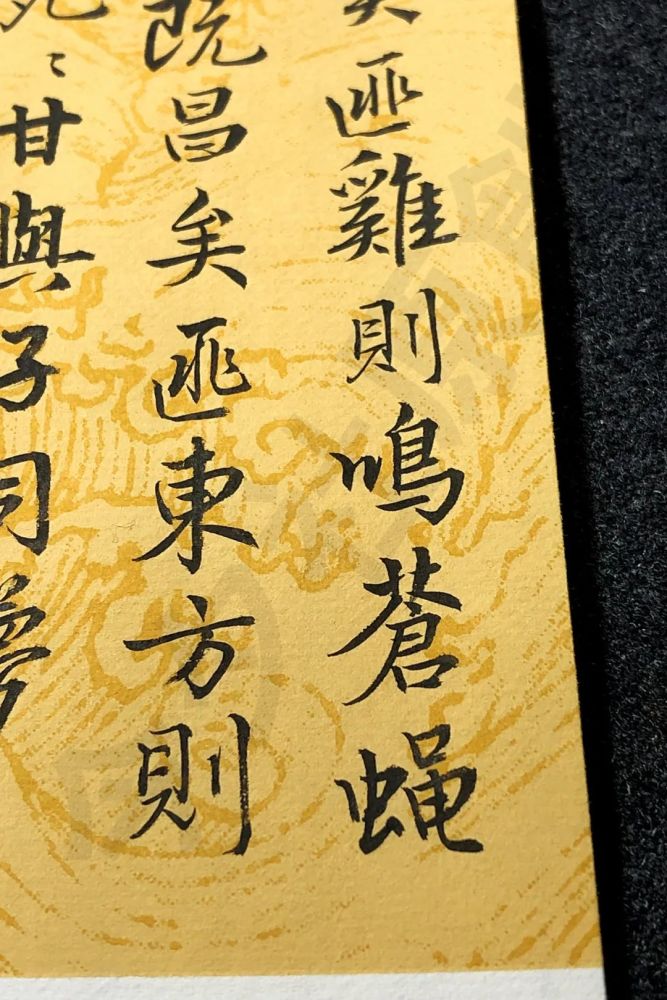 矣匪雞則鳴蒼蝇
既昌矣匪東方則
甘與子同夢